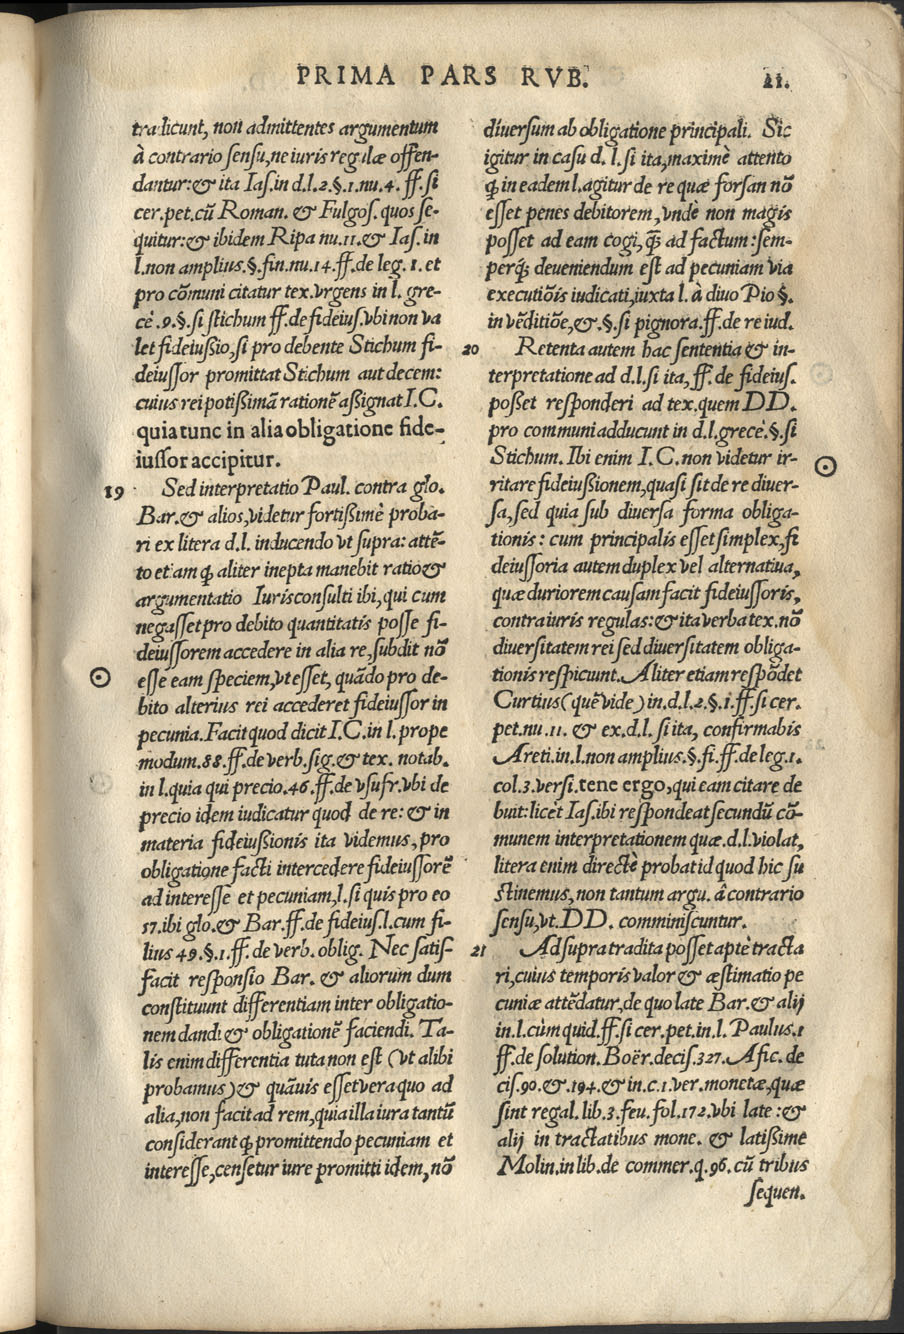 PRIMA PARS RVB.
21.
tradicunt, non admittentes argumentum
à contrario sensu, ne iuris regulæ offen-
dantur: & ita Ias. in d.l.2.§.1.nu.4. ff. si
cer.pet.cũ Roman. & Fulgos. quos se-
quitur: & ibidem Ripa nu.11.& Ias. in
l.non amplius.§.fin.nu.14.ff.de leg.1. et
pro cõmuni citatur tex.vrgens in l. gre-
cè.9.§.si stichum ff.de fideius.vbi non va
let fideiussio, si pro debente Stichum fi-
deiussor promittat Stichum aut decem:
cuius rei potissimã rationẽ assignat I.C.
quia tunc in alia obligatione fide-
iussor accipitur.
19 Sed interpretatio Paul. contra glo.
Bar.& alios, videtur fortissimè proba-
ri ex litera d.l. inducendo vt supra: attẽ-
to etiam ꝙ aliter inepta manebit ratio &
argumentatio Iurisconsulti ibi, qui cum
negasset pro debito quantitatis posse fi-
deiussorem accedere in alia re, subdit nõ
esse eam speciem, vt esset, quãdo pro de-
bito alterius rei accederet fideiussor in
pecunia. Facit quod dicit I.C. in l. prope
modum.88.ff.de verb.sig.& tex. notab.
in l.quia qui precio.46.ff.de vsufr.vbi de
precio idem iudicatur quod de re: & in
materia fideiussionis ita videmus, pro
obligatione facti intercedere fideiussorẽ
ad interesse et pecuniam, l. si quis pro eo
57.ibi glo.& Bar.ff.de fideius.l.cum fi-
lius 49.§.1.ff. de verb. oblig. Nec satis-
facit responsio Bar. & aliorum dum
constituunt differentiam inter obligatio-
nem dandi & obligationẽ faciendi. Ta-
lis enim differentia tuta non est (vt alibi
probamus) & quãuis esset vera quo ad
alia, non facit ad rem, quia illa iura tantũ
considerant ꝙ promittendo pecuniam et
interesse, censetur iure promitti idem, nõ
diuersum ab obligatione principali. Sic
igitur in casu d. l. si ita, maximè attento
ꝙ in eadem l. agitur de re quæ forsan nõ
esset penes debitorem, vndè non magis
posset ad eam cogi, ꝗ̃ ad factum: sem-
perꝗ; deueniendum est ad pecuniam via
executiõis iudicati, iuxta l. à diuo Pio §.
in vẽditiõe, &.§.si pignora.ff.de re iud.
20 Retenta autem hac sententia & in-
terpretatione ad d.l. si ita, ff. de fideius.
posset responderi ad tex.quem DD.
pro communi adducunt in d.l.grecè.§.si
Stichum. Ibi enim I.C. non videtur ir-
ritare fideiussionem, quasi sit de re diuer-
sa, sed quia sub diuersa forma obliga-
tionis: cum principalis esset simplex, fi
deiussoria autem duplex vel alternatiua,
quæ duriorem causam facit fideiussoris,
contra iuris regulas: & ita verba tex. nõ
diuersitatem rei sed diuersitatem obliga-
tionis respiciunt. Aliter etiam respõdet
Curtius (quẽ vide) in.d.l.2.§.1.ff.si cer.
pet.nu.11. & ex.d.l. si ita, confirmabis
Areti.in.l.non amplius.§.fi.ff.de leg.1.
col.3.versi.tene ergo, qui eam citare de
buit: licèt Ias.ibi respondeat secundũ cõ-
munem interpretationem quæ.d.l.violat,
litera enim directè probat id quod hic su
stinemus, non tantum argu. à contrario
sensu, vt. DD. comminiscuntur.
21 Ad supra tradita posset aptè tracta
ri, cuius temporis valor & æstimatio pe
cuniæ attẽdatur, de quo late Bar.& alij
in.l.cùm quid.ff.si cer.pet.in.l. Paulus.1
ff.de solution.Boër.decis.327.Afic. de
cis.90.&.194.& in.c.1.ver.monetæ, quæ
sint regal.lib.3.feu.fol.172.vbi late: &
alij in tractatibus mone. & latissime
Molin.in lib.de commer.q.96.cũ tribus
sequen.